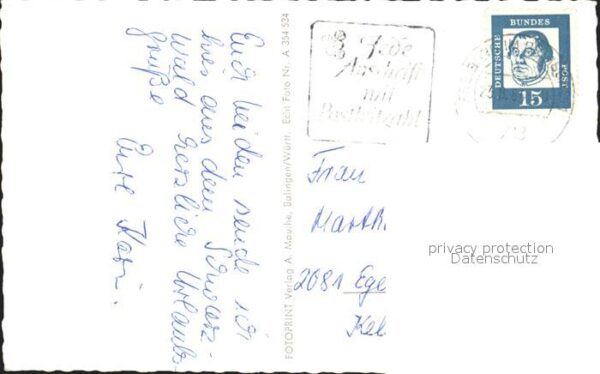 Euch beiden sende ich
hier aus dem Schwarz-
wald herzliche Urlaubs-
grüße
Eure Karin.
FOTOPRINT Verlag A. Mauthe, Balingen/Württ. Echt Foto Nr. A 354 534
Jede
Anschrift
mit
Postleitzahl
DEUTSCHE
BUNDES
POST
15
Frau
Marth
2081 Ege
Kel
privacy protection
Datenschutz